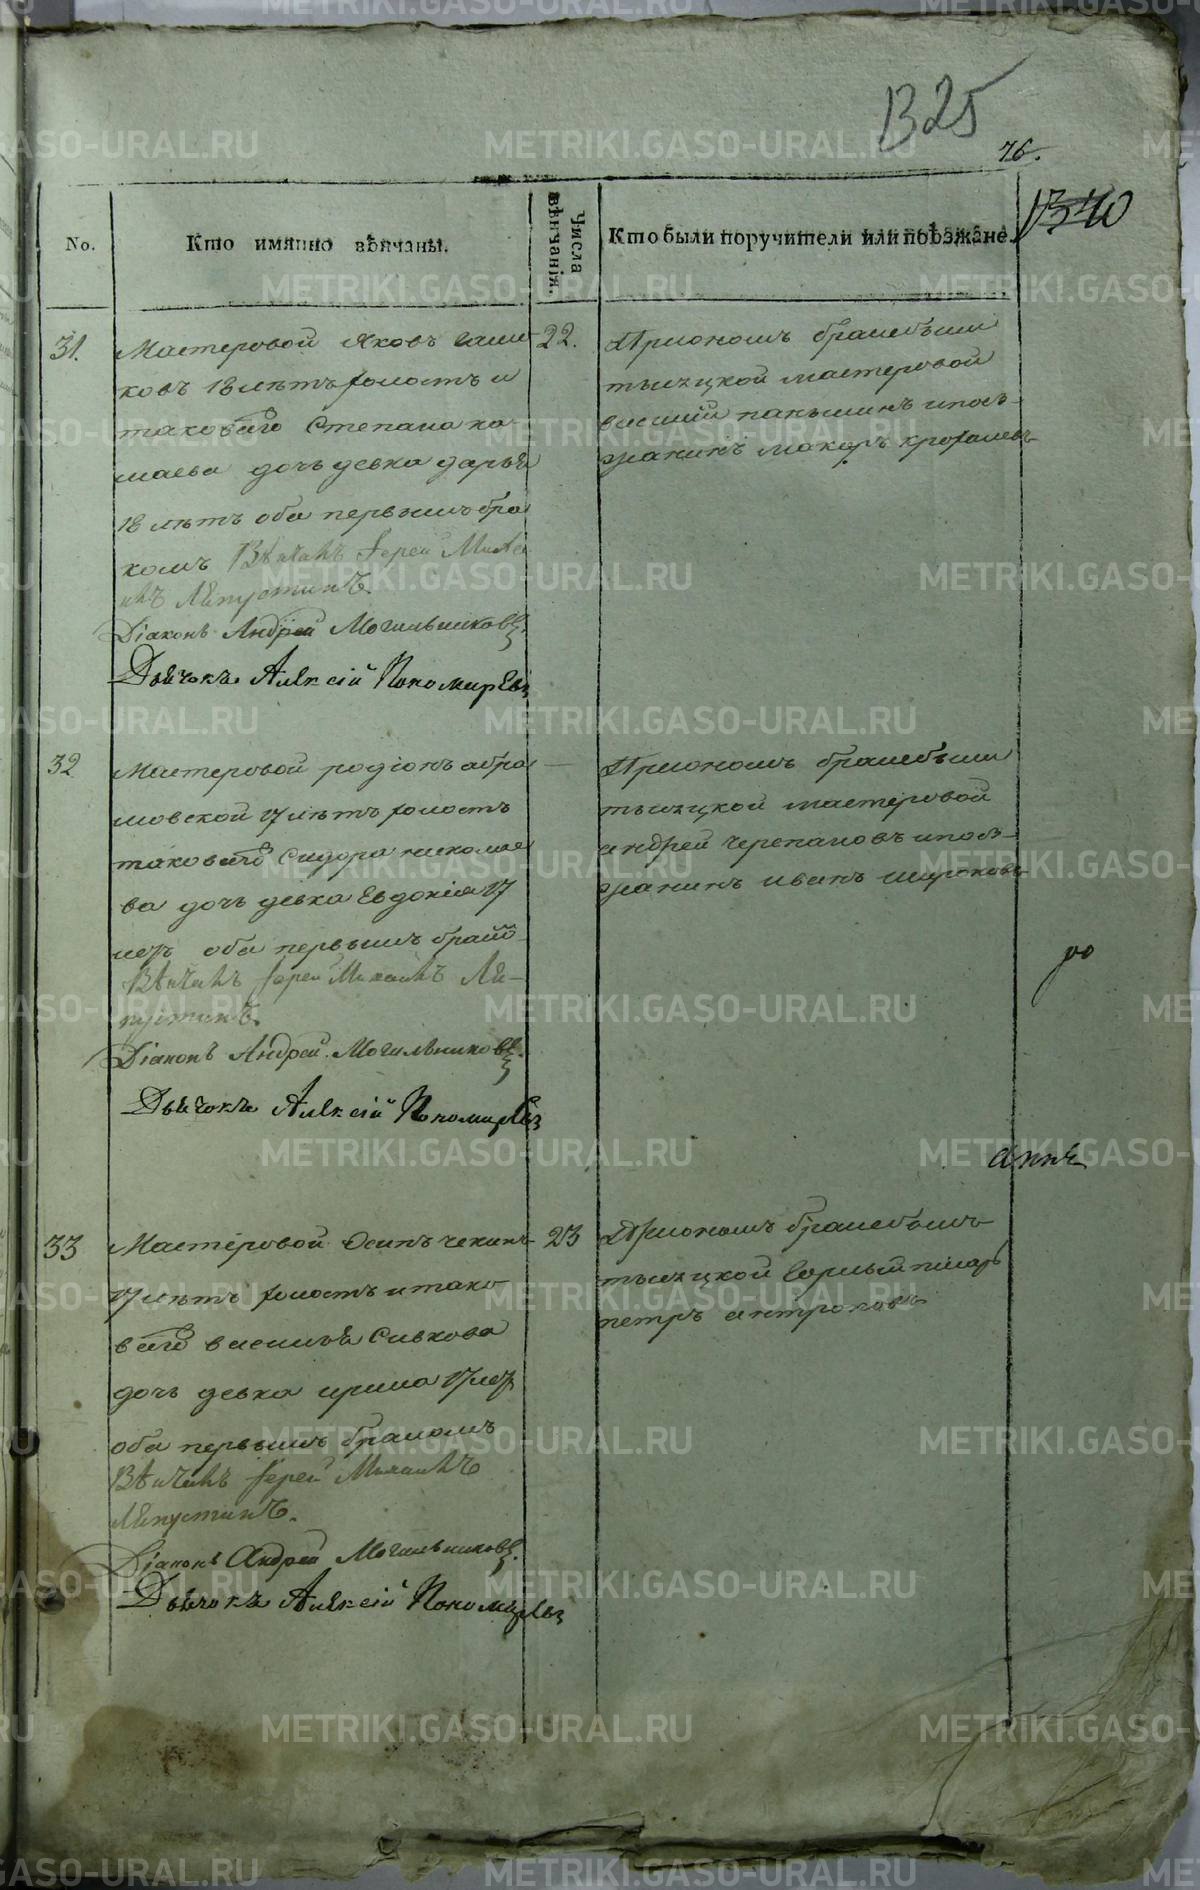 1325
76.
1340
No.
Кто имянно вѣнчаны.
Числа вѣнчанія.
Кто были поручители или поѣзжане.
31.
Мастеровой Яковъ
ковъ 18 лѣтъ холостъ и
таковаго Степана ка-
маева дочь девка дарья
18 лѣтъ оба первымъ бра
комъ Вѣнчалъ Іерей Михаи
илъ Лѣпустинъ.
Діаконъ Андрей Могильниковъ.
Дьячокъ Алексій Пономаревъ
22.
При ономъ браке были
тысяцкой мастеровой
василій паньшинъ и поѣз-
жанинъ макаръ крохалевъ
32
Мастеровой родіонъ абра
мовской 17 лѣтъ холостъ
таковаго Сидора николае
ва дочь девка Евдокія 17
летъ оба первымъ бракомъ
Вѣнчалъ Іерей Михаилъ Лѣ-
пустинъ.
Діаконъ Андрей Могильниковъ.
Дьячокъ Алексій Пономаревъ
—
При ономъ браке были
тысяцкой мастеровой
андрей Черепановъ и поѣз-
жанинъ иванъ широковъ
33
Мастеровой Осипъ чекинъ
17 лѣтъ холостъ и тако
ваго василья Сивкова
дочь девка ирина 17 летъ
оба первымъ бракомъ
Вѣнчалъ Іерей Михаилъ
Лѣпустинъ.
Діаконъ Андрей Могильниковъ.
Дьячокъ Алексій Пономаревъ
23
При ономъ браке былъ
тысяцкой Горный писарь
петръ антроповъ
METRIKI.GASO-URAL.RU